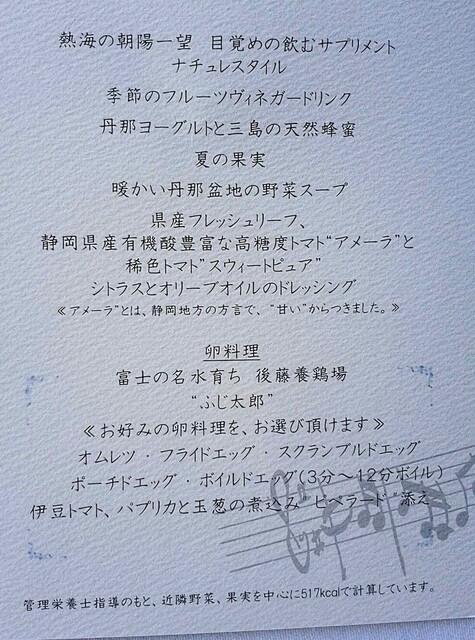 熱海の朝陽一望 目覚めの飲むサプリメント
ナチュレスタイル
季節のフルーツヴィネガードリンク
丹那ヨーグルトと三島の天然蜂蜜
夏の果実
暖かい丹那盆地の野菜スープ
県産フレッシュリーフ、
静岡県産有機酸豊富な高糖度トマト“アメーラ”と
稀色トマト”スウィートピュア”
シトラスとオリーブオイルのドレッシング
≪アメーラ”とは、静岡地方の方言で、“甘い”からつきました。≫
卵料理
富士の名水育ち 後藤養鶏場
“ふじ太郎”
≪お好みの卵料理を、お選び頂けます≫
オムレツ・フライドエッグ・スクランブルドエッグ
ポーチドエッグ・ボイルドエッグ(3分～12分ボイル)
伊豆トマト、パプリカと玉葱の煮込み ピペラード 添え
管理栄養士指導のもと、近隣野菜、果実を中心に517kcalで計算しています。